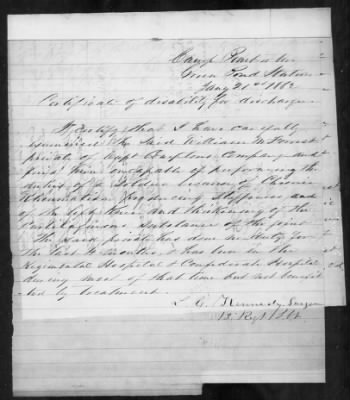 Camp
Green Pond Station
Jany 21st 1862
Certificate of disability for discharge
I certify that I have carefully
examined the said William M
private of Capt Company and
find him incapable of performing the
duties of a Soldier because of chronic
Rheumatism producing Stiffness
of the left Knee and thickening of the
Cartilaginous Substance of the joint
The said private has done no duty for
the last 4 months, & has been in the
Regimental Hospital & Confederate Hospital
during most of that time but not benefit
ted by treatment
L. C. Kennedy Surgeon
13 Regt S.C.V.